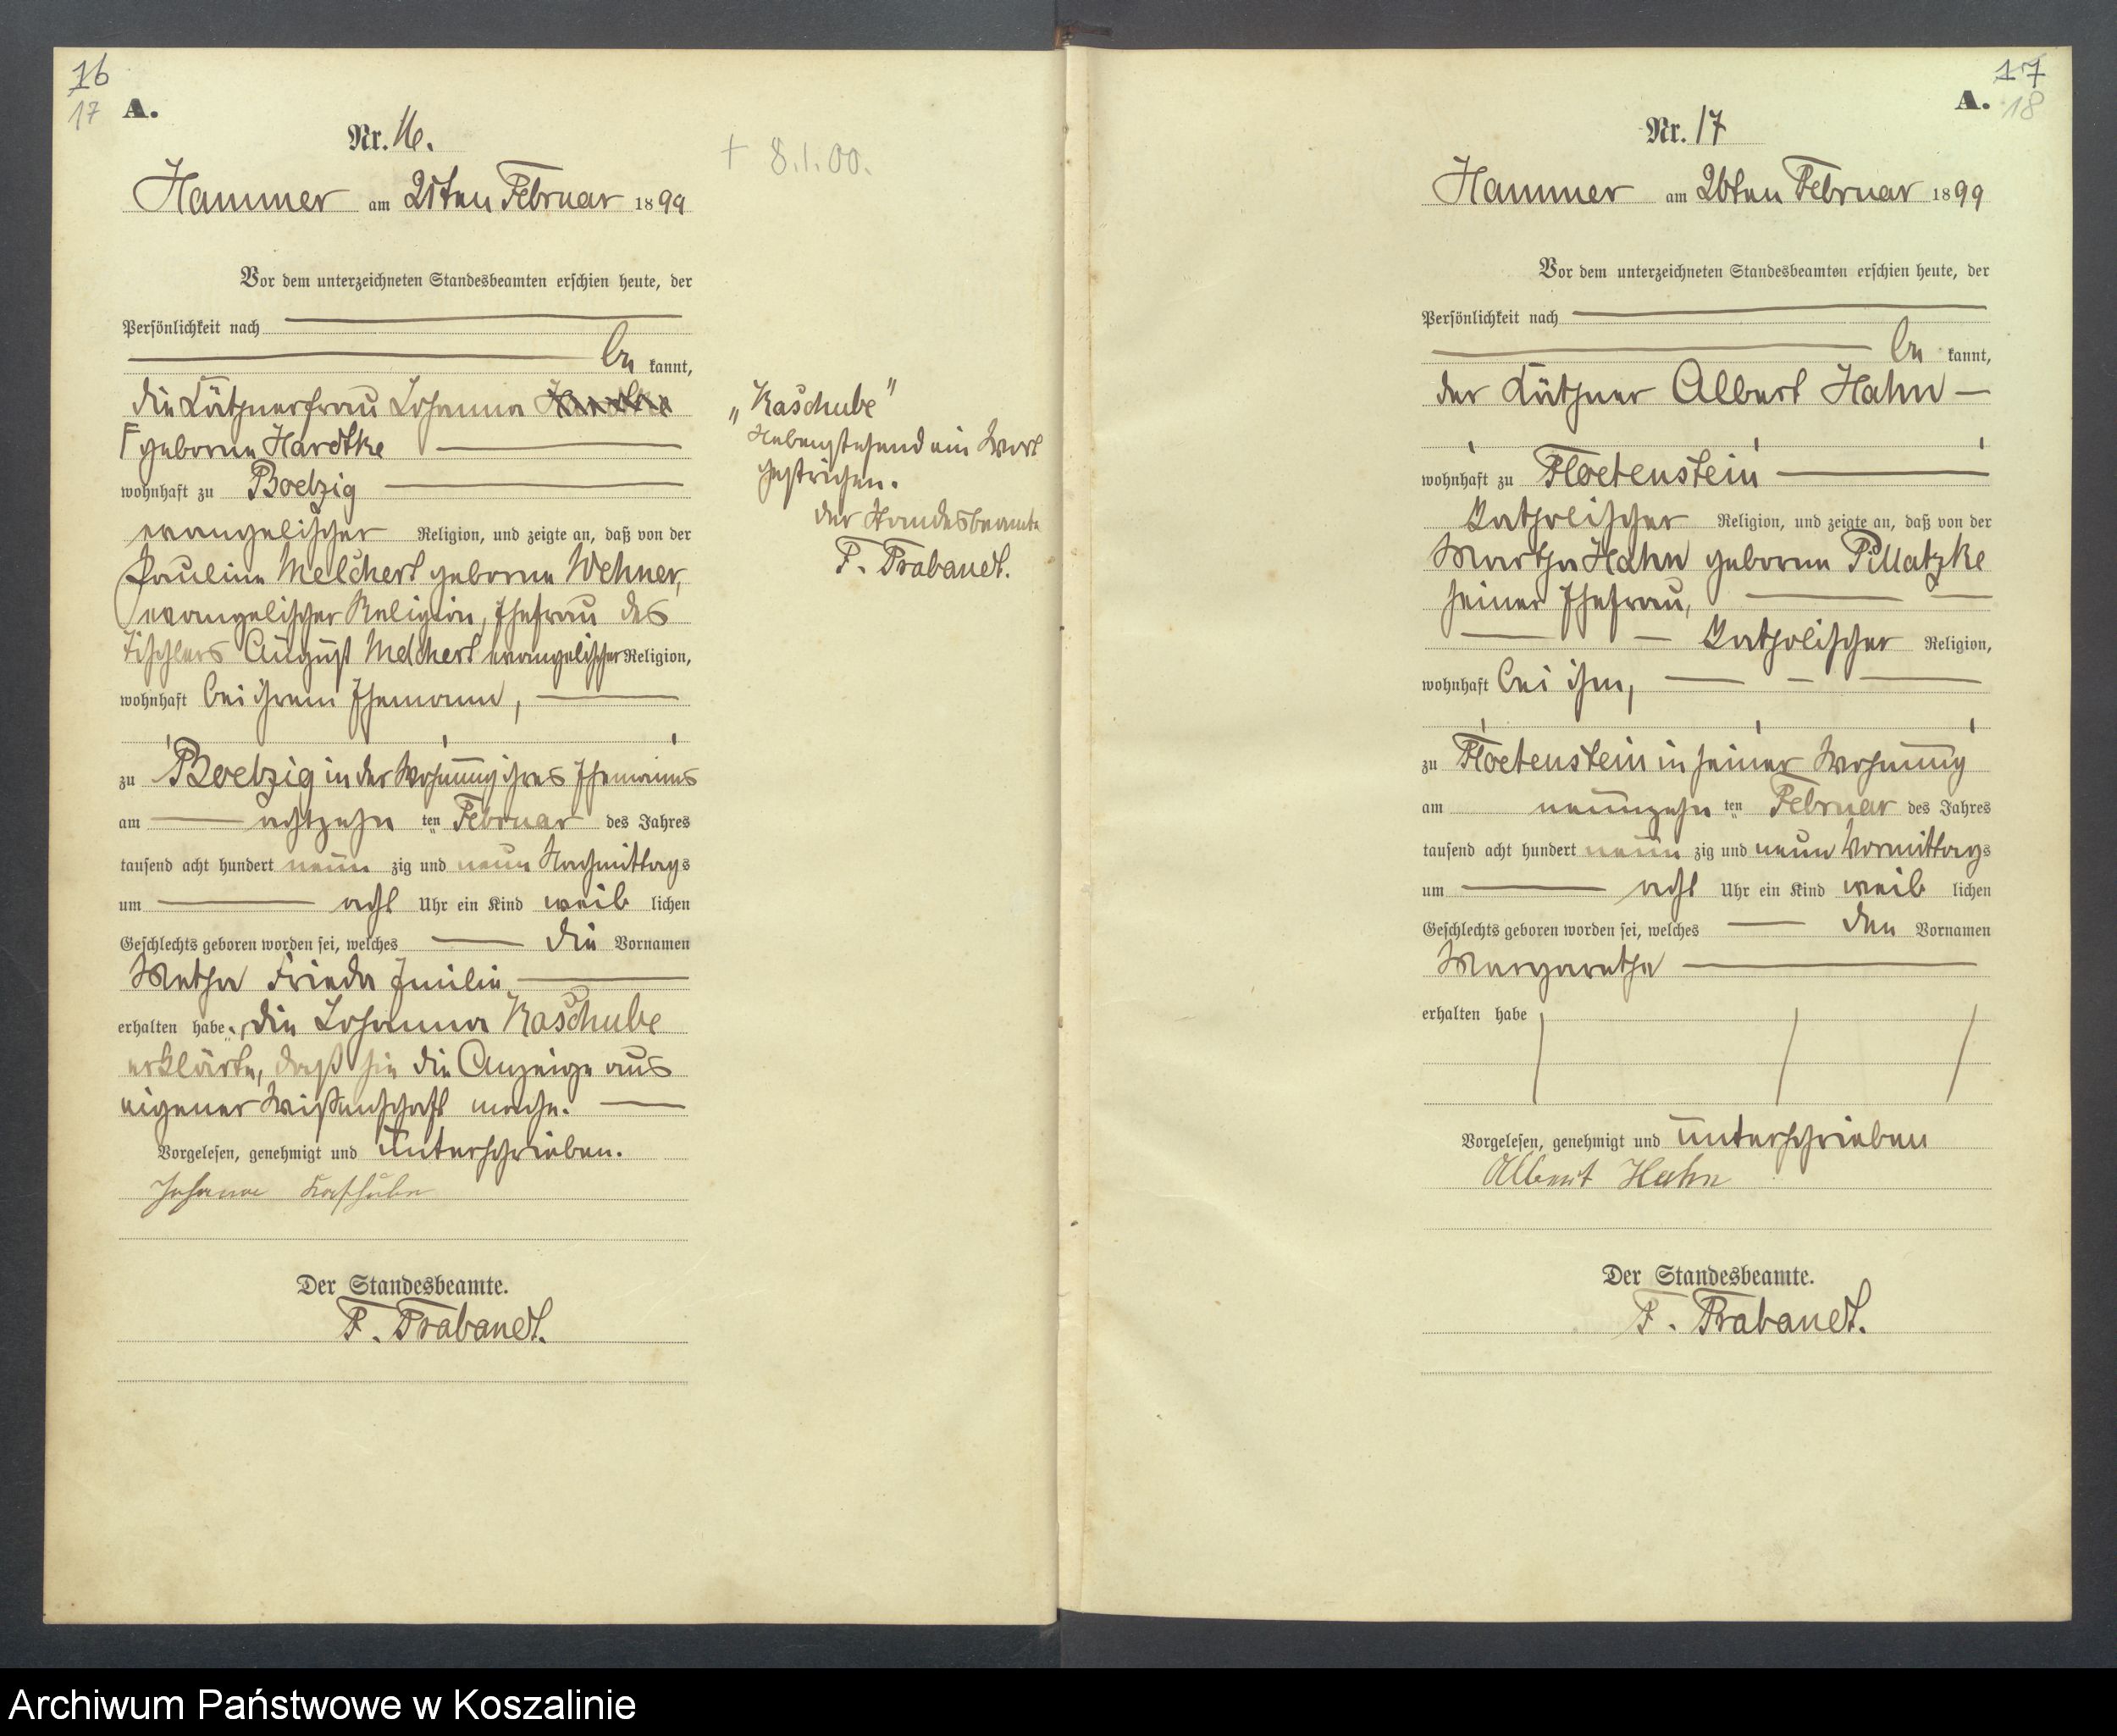 16
17
A.
Nr. 16.
+ 8.1.00.
Hammer am 21ten Februar 1899
Vor dem unterzeichneten Standesbeamten erschien heute, der
Persönlichkeit nach
be kannt,
die Käthnerfrau Johanna
F geborne Hardtke
wohnhaft zu Boelzig
evangelischer Religion, und zeigte an, daß von der
Pauline Melchert geborne Wehner,
evangelischer Religion, Ehefrau des
Tischlers August Melchert evangelischer Religion,
wohnhaft bei ihrem Ehemann,
zu Boelzig in der Wohnung ihres Ehemannes
am achtzehn ten Februar des Jahres
tausend acht hundert neun zig und neun Nachmittags
um acht Uhr ein Kind weib lichen
Geschlechts geboren worden sei, welches die Vornamen
Metha Frieda Emilie
erhalten habe. Die Johanna Kaschube
erklärte, daß sie die Anzeige aus
eigener Wissenschaft mache.
Vorgelesen, genehmigt und unterschrieben.
Johanna Kaschube
Der Standesbeamte.
F. Trabandt.
„Kaschube"
Nebenstehend ein Wort
gestrichen.
der Standesbeamte
F. Trabandt.
17
A. 18
Nr. 17
Hammer am 26ten Februar 1899
Vor dem unterzeichneten Standesbeamten erschien heute, der
Persönlichkeit nach
be kannt,
der Käthner Albert Hahn
wohnhaft zu Floetenstein
Katholischer Religion, und zeigte an, daß von der
Martha Hahn geborne Pillatzke
seiner Ehefrau,
Katholischer Religion,
wohnhaft bei ihm,
zu Floetenstein in seiner Wohnung
am neunzehn ten Februar des Jahres
tausend acht hundert neun zig und neun Vormittags
um acht Uhr ein Kind weib lichen
Geschlechts geboren worden sei, welches den Vornamen
Margaretha
erhalten habe
Vorgelesen, genehmigt und unterschrieben
Albert Hahn
Der Standesbeamte.
F. Trabandt.
Archiwum Państwowe w Koszalinie